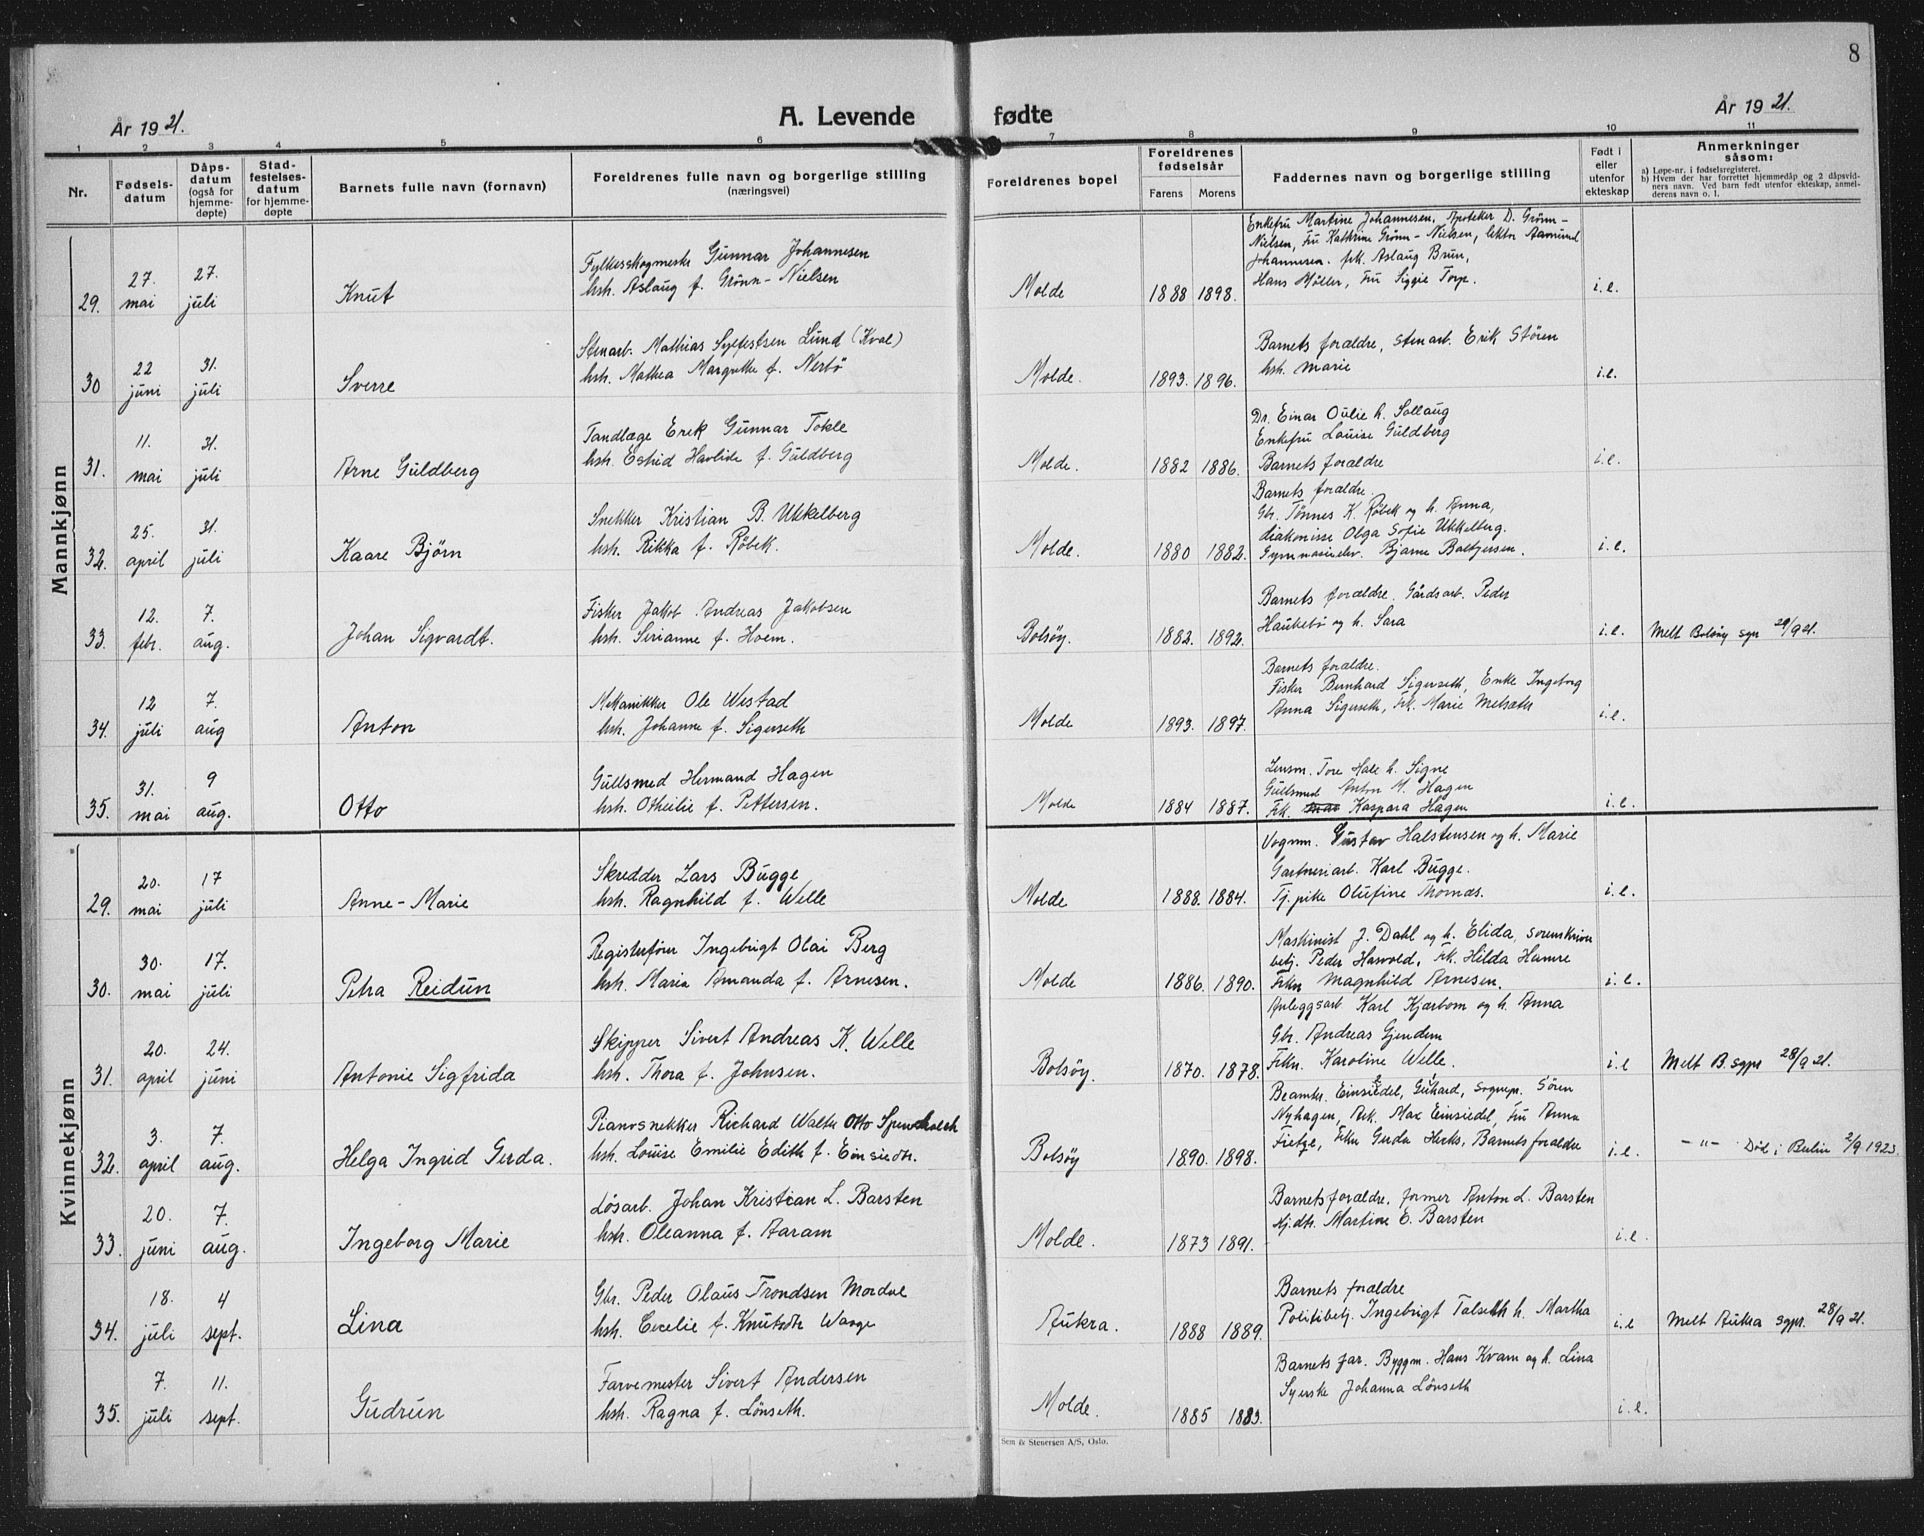 8
År 1921.
A. Levende fødte
År 1921.
1 2 3 4 5 6 7 8 9 10 11
Nr.
Fødsels-
datum
Dåps-
datum
(også for
hjemme-
døpte)
Stad-
festelses-
datum
for hjemme-
døpte
Barnets fulle navn (fornavn)
Foreldrenes fulle navn og borgerlige stilling
(næringsvei)
Foreldrenes bopel
Foreldrenes
fødselsår
Farens Morens
Faddernes navn og borgerlige stilling
Født i
eller
utenfor
ekteskap
Anmerkninger
såsom:
a) Løpe-nr. i fødselsregisteret.
b) Hvem der har forrettet hjemmedåp og 2 dåpsvid-
ners navn. Ved barn født utenfor ekteskap, anmel-
derens navn o. l.
Mannkjønn
29. 27. mai 27. juli Knut
Fylkesskogmestr Gunnar Johannesen
hstr. Aslaug f. Grønn-Nielsen
Molde 1888 1898.
Enkefru Martine Johannesen, Apoteker D. Grønn-
Nielsen, Fru Kathrine Grønn-Nielsen, lektor Aamund
Johannesen. frk. Aslaug Brun,
Hans Møller, Fru Siggie Torp.
i.e.
30 22 juni 31. juli Sverre
Stenarb. Mathias Sylfestsen Lund (Kvol)
hstr. Mathea Margrethe f. Nerbø
Molde. 1893. 1896.
Barnets forældre, stenarb. Erik Støren
hstr. Marie
i.e.
31. 11. mai 31. juli Arne Guldberg
Tandlæge Erik Gunnar Tokle
hstr. Estrid f. Guldberg
Molde. 1882 1886.
Dr. Einar Oulie h. Sollaug
Enkefru Louise Guldberg
Barnets forældre
i.e.
32. 25. april 31. juli Kaare Bjørn
Snekker Kristian B. Ukkelberg
hstr. Rikka f. Røbek.
Molde. 1880 1882.
Barnets forældre.
Gbr. Tønnes K. Røbek og h. Anna,
diakonisse Olga Sofie Ukkelberg.
Gymnasieelev. Bjarne
i.e.
33. 12. febr. 7. aug. Johan Sigvardt.
Fisker Jakob Andreas Jakobsen
hstr. Serianne f. Hoem.
Bolsøy. 1882. 1892.
Barnets forældre. Gårdsarb. Peder
Haukebø og h. Sara
i.e. Melt Bolsøy sgpr 29/9 21.
34. 12 juli 7. aug Anton
Mekanikker Ole Westad
hstr. Johanne f. Sigerseth
Molde 1893. 1897.
Barnets forældre.
Fisker Bernhard Sigerseth, Enke Ingeborg
Anna Sigerseth, Frk. Marie
i.e.
35. 31. mai 9 aug. Otto
Gullsmed Hermand Hagen
hstr. Otheilie f. Pettersen.
Molde 1884 1887.
Lensm. Tore Hale h. Signe
Gullsmed Anton M. Hagen
Frk. Kaspara Hagen
i.e.
Kvinnekjønn
29. 20. mai 17 juli Anne-Marie
Skredder Lars Bugge
hstr. Ragnhild f. Welle
Molde 1888. 1884.
Vognm. Gustav Halstensen og h. Marie
Gartneriarb. Karl Bugge.
Tj.pike Olufine Thomas.
i.e.
30. 30. mai 17. juli Petra Reidun
Registerfører Ingebrigt Olai Berg
hstr. Maria Amanda f. Arnesen.
Molde 1886. 1890.
Maskinist J. Dahl og h. Elida, sorenskriver
betj. Peder Hasvold, Frk. Hilda Hamre
Frkn Magnhild Arnesen.
i.e.
31. 20. april 24. juni Antonie Sigfrida
Skipper Sivert Andreas K. Welle
hstr. Thora f. Johnsen.
Bolsøy. 1870. 1878.
Anleggsarb Karl Kjærbom og h. Anna
Gbr. Andreas Gjendem
Frkn. Karoline Welle.
i.e Melt B. sgpr 28/9 21.
32. 3. april 7. aug. Helga Ingrid Gerda.
Pianosnekker Richard Walter Otto
hstr. Louise Emilie Edith f. Einsiedel.
Bolsøy 1890. 1898.
Beamter. Einsiedel, Gerhard, sognepr. Søren
Nyhagen, Ark. Max Einsiedel, Fru Anna
Fietze, Frkn Gerda Herks, Barnets forældre
i.e. - " - Død i Berlin 2/9 1923.
33. 20. juni 7. aug. Ingeborg Marie
Løsarb. Johan Kristian L. Barsten
hstr. Oleanna f. Aaram
Molde. 1873 1891.
Barnets forældre, former Anton L. Barsten
Hj.dtr. Martine E. Barsten
i.e.
34. 18. juli 4 sept. Lina
Gbr. Peder Olaus Trondsen Mordal
hstr. Cecelie f. Knutsdtr Waage
Aukra. 1888 1889.
Barnets forældre
Politibetj. Ingebrigt Talseth h. Martha
i.e Melt Aukra sgpr. 28/9 21.
35. 7. juli 11. sept. Gudrun
Farvemester Sivert Andersen
hstr. Ragna f. Lønseth.
Molde. 1885 1883.
Barnets far. Byggm. Hans Kvam og h. Lina
Syerske Johanna Lønseth
i.e.
Sem & Stenersen A/S, Oslo.